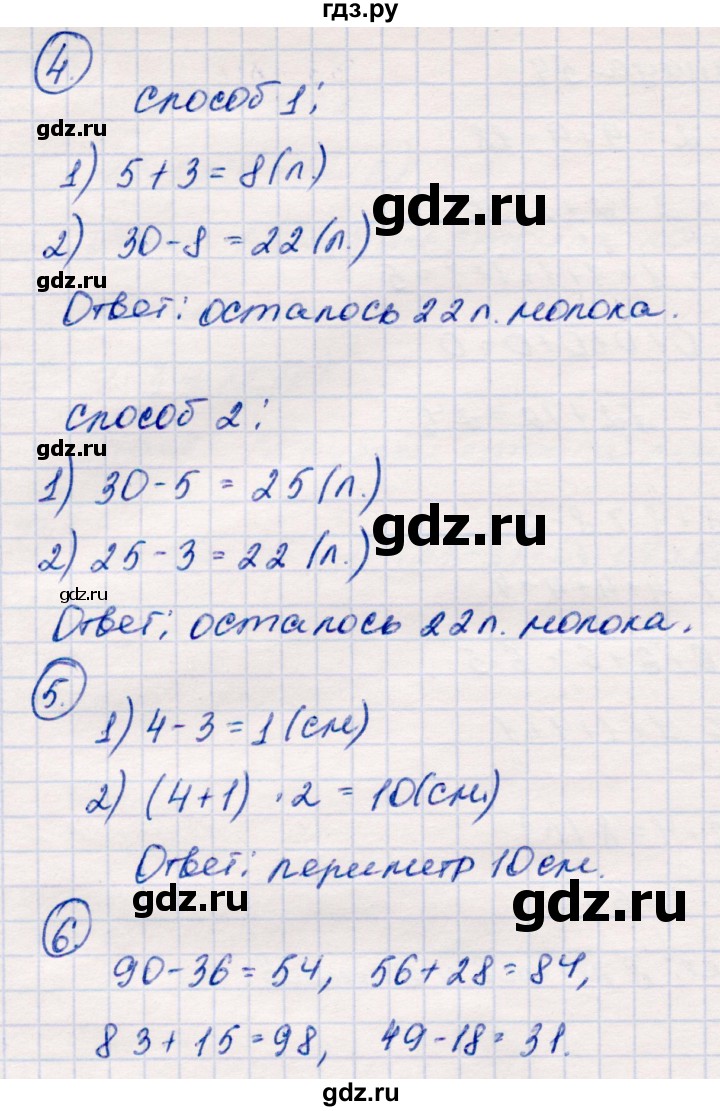 гдз.ру
4.
способ 1:
gdz.ru
1) 5 + 3 = 8 (л.)
gdz.ru
2) 30 - 8 = 22 (л.)
gdz.ru
Ответ: осталось 22 л. молока.
способ 2:
gdz.ru
1) 30 - 5 = 25 (л.)
gdz.ru
2) 25 - 3 = 22 (л.)
gdz.ru
Ответ: осталось 22 л. молока.
5.
1) 4 - 3 = 1 (см)
2) (4 + 1) · 2 = 10 (см)
Ответ: периметр 10 см.
gdz.ru
gdz.ru
6.
90 - 36 = 54, 56 + 28 = 84,
83 + 15 = 98, 49 - 18 = 31.
gdz.ru